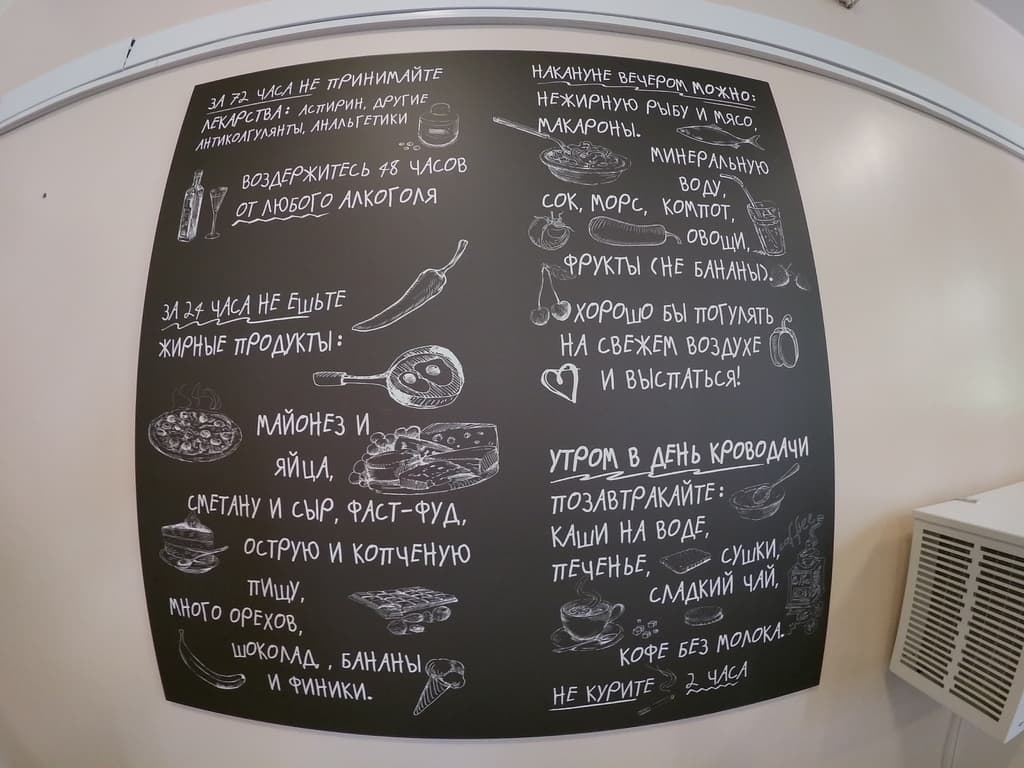 ЗА 72 ЧАСА НЕ ПРИНИМАЙТЕ
ЛЕКАРСТВА: АСПИРИН, ДРУГИЕ
АНТИКОАГУЛЯНТЫ, АНАЛЬГЕТИКИ
ВОЗДЕРЖИТЕСЬ 48 ЧАСОВ
ОТ ЛЮБОГО АЛКОГОЛЯ
ЗА 24 ЧАСА НЕ ЕШЬТЕ
ЖИРНЫЕ ПРОДУКТЫ:
МАЙОНЕЗ И
ЯЙЦА,
СМЕТАНУ И СЫР, ФАСТ-ФУД,
ОСТРУЮ И КОПЧЕНУЮ
ПИЩУ,
МНОГО ОРЕХОВ,
ШОКОЛАД, БАНАНЫ
И ФИНИКИ.
НАКАНУНЕ ВЕЧЕРОМ МОЖНО:
НЕЖИРНУЮ РЫБУ И МЯСО,
МАКАРОНЫ.
МИНЕРАЛЬНУЮ
ВОДУ,
СОК, МОРС, КОМПОТ,
ОВОЩИ,
ФРУКТЫ (НЕ БАНАНЫ).
ХОРОШО БЫ ПОГУЛЯТЬ
НА СВЕЖЕМ ВОЗДУХЕ
И ВЫСПАТЬСЯ!
УТРОМ В ДЕНЬ КРОВОДАЧИ
ПОЗАВТРАКАЙТЕ:
КАШИ НА ВОДЕ,
ПЕЧЕНЬЕ, СУШКИ,
СЛАДКИЙ ЧАЙ,
coffee
КОФЕ БЕЗ МОЛОКА.
НЕ КУРИТЕ 2 ЧАСА